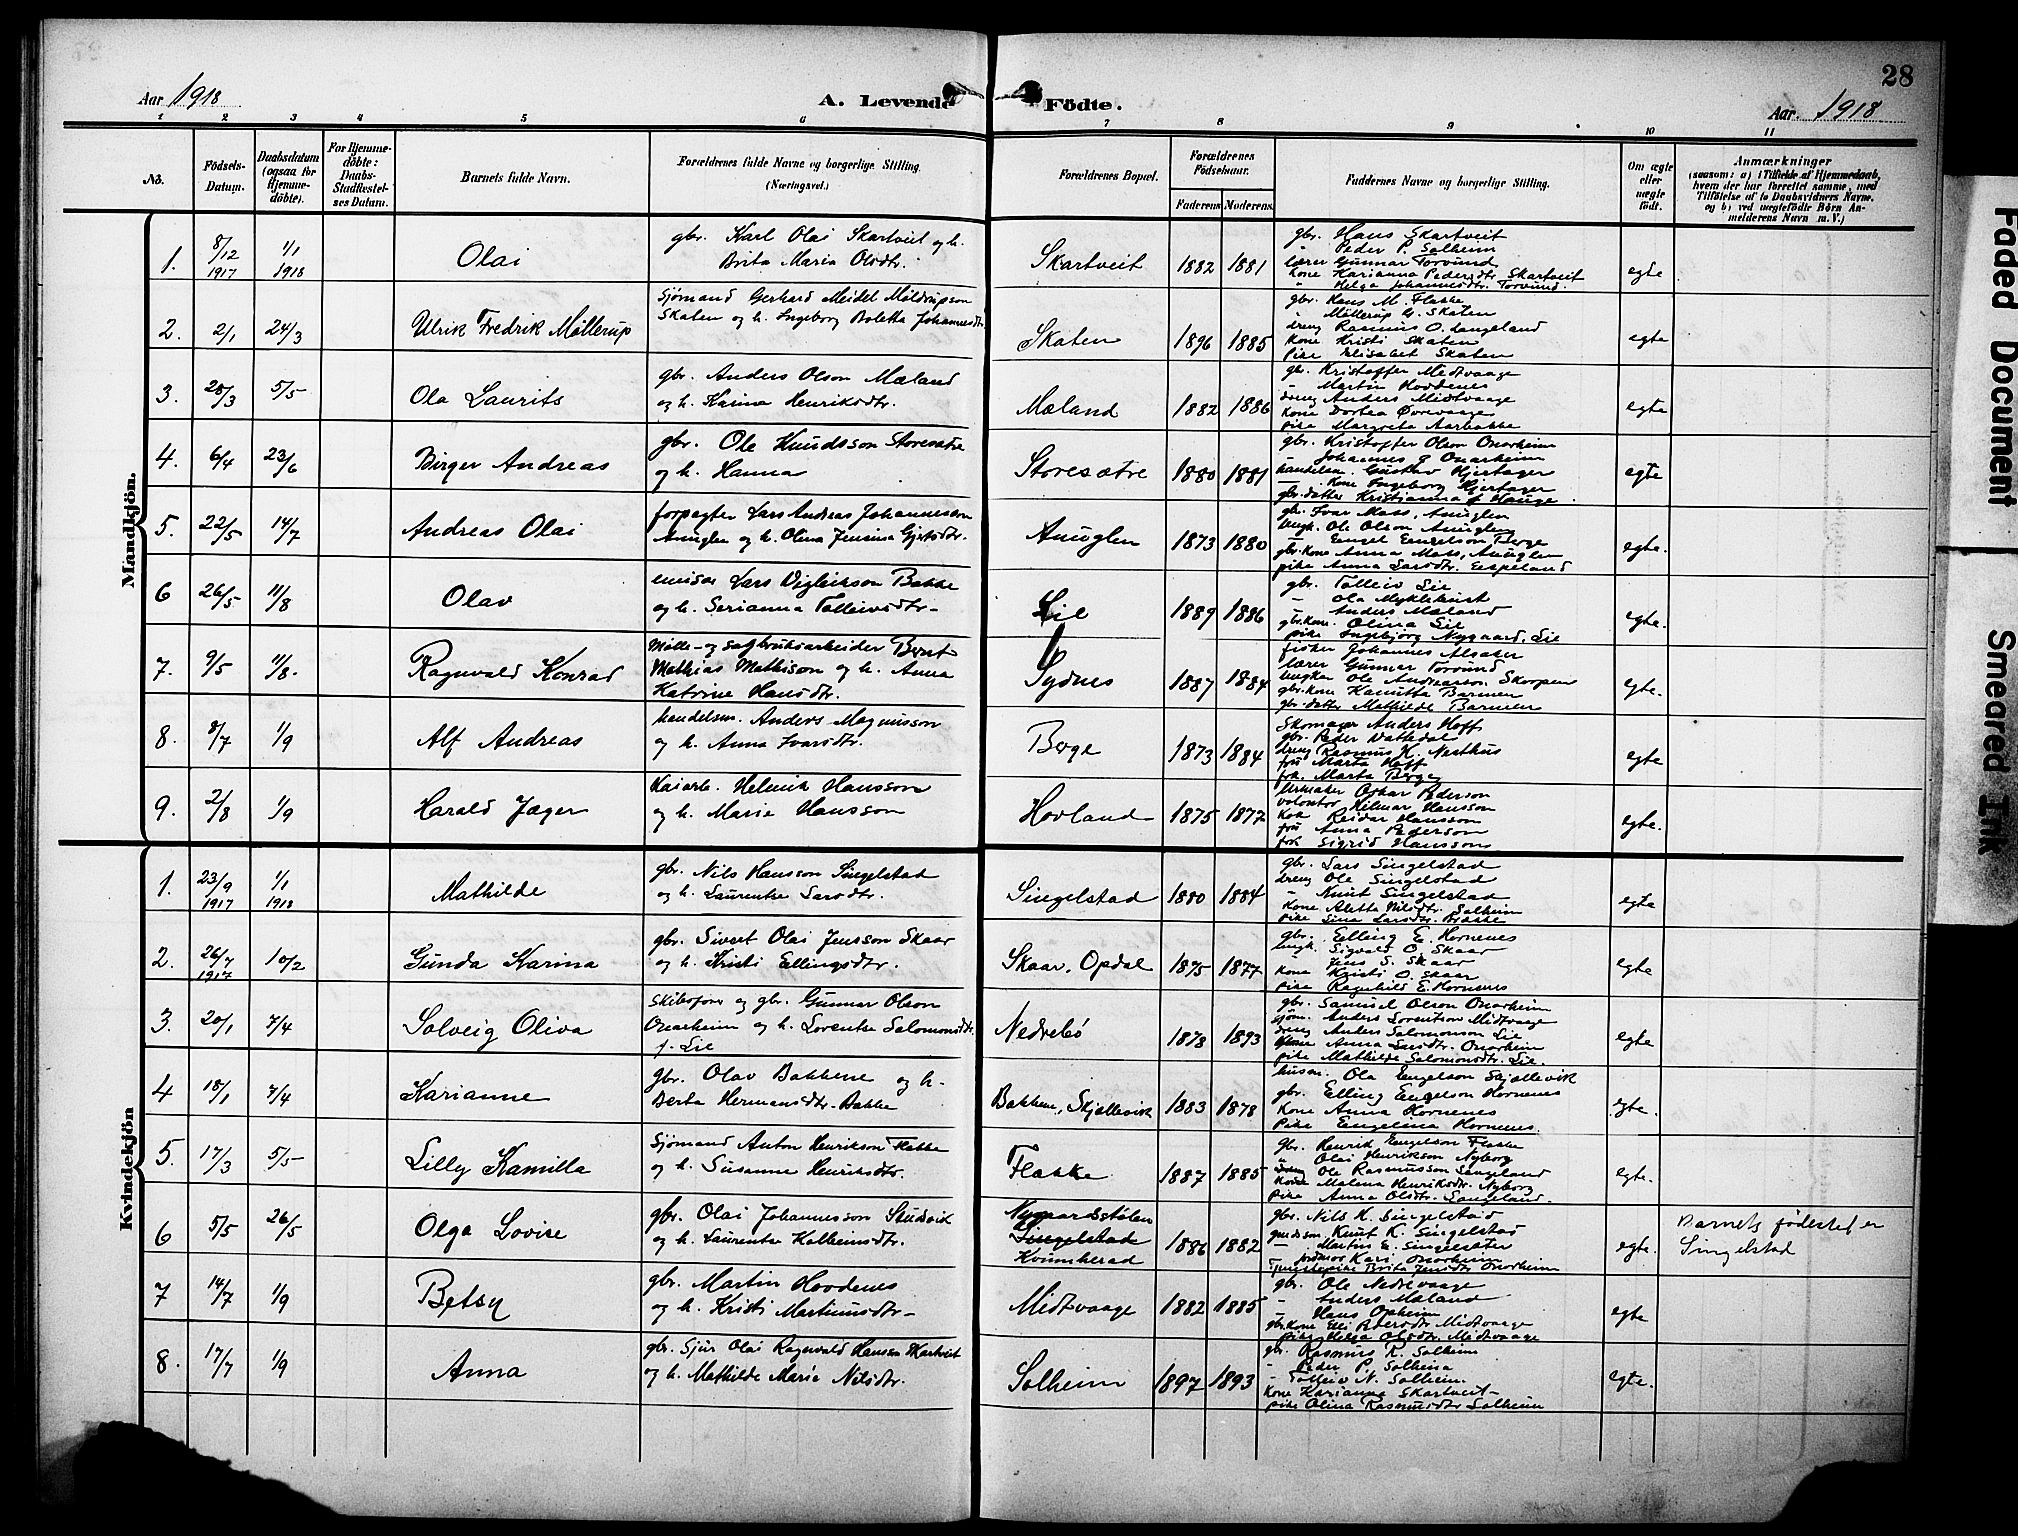 28
Aar 1918
A. Levende Födte.
Aar 1918
1 2 3 4 5 6 7 8 9 10 11
No.
Födsels-Datum.
Daabsdatum (ogsaa for Hjemmedöbte).
For Hjemmedöbte: Daabs-Stadfæstelses Datum.
Barnets fulde Navn.
Forældrenes fulde Navne og borgerlige Stilling. (Næringsvei.)
Forældrenes Bopæl.
Forældrenes Födselsaar.
Faderens Moderens
Faddernes Navne og borgerlige Stilling.
Om ægte eller uægte födt.
Anmærkninger
(saasom: a) i Tilfælde af Hjemmedaab, hvem der har forrettet samme, med Tilföielse af to Daabsvidners Navne, og b) ved uægtefödte Börn Anmelderens Navn m. V.)
Mandkjön.
1. 8/12 1917 1/1 1918 Olai
gbr. Karl Olai Skartveit og h.
Brita Maria Olsdtr.
Skartveit 1882 1881
gbr. Hans Skartveit
" Peder P. Solheim
lærer Gunnar Torvund
kone Karianna Pedersdtr. Skartveit
" Helga Johannesdtr. Torvund.
egte
2. 2/1 24/3 Ulrik Fredrik Möllerup
Sjömand Gerhard Meidel Möldrupson
Skaten og h. Ingeborg Boletta Johannesdtr
Skaten 1896 1885
gbr. Hans M. Flakke
" Möllerup G. Skaten
dreng Rasmus O. Langeland
kone Kristi Skaten
pike Elisabet Skaten
egte
3. 28/3 5/5 Ola Laurits
gbr. Anders Olson Mæland
og h. Karina Henriksdtr.
Mæland 1882 1886
gbr. Kristoffer Midtvaage
- Martin Hovdenes
dreng Anders Midtvaage
kone Dortea Övrevaage
pike Margreta Aarbakke
egte
4. 6/4 23/6 Birger Andreas
gbr. Ole Knudsson Storesætre
og h. Hanna
Storesætre 1880 1881
gbr. Kristoffer Olson Onarheim
- Johannes J Onarheim
handelsm. Gustav Hjertager
- kone Ingeborg Hjertager
gbr. datter Kristianna J Hauge.
egte
5. 22/5 14/7 Andreas Olai
forpagter Lars Andreas Johannesson
Anuglen og h. Olina Jensina Gjertsdtr.
Anuglen 1873 1880
gbr. Ivar Mass, Anuglen
ungk. Ole Olson Anuglen
- Engel Engelson Berge
gbr. kone Anna Mass, Anuglen
pike Anna Larsdtr. Espeland
egte.
6 26/5 11/8 Olav
emisær Lars Vigleikson Bakke
og h. Serianna Tolleivsdtr-
Lie 1889 1886
gbr. Tolleiv Lie
- Ola Myklekvist
- Anders Mæland
gbr. kone. Olina Lie
pike Ingebjörg Nygaard, Lie
egte.
7. 9/5 11/8. Ragnvald Konrad
Mölle- og sagbruksarbeider Bernt
Mathias Mathison og h. Anna
Katrine Hansdtr.
Sydnes 1887 1884
fisker Johannes Alsaker
lærer Gunnar Torvund
ungkar Ole Andreasson, Skorpen
gbr. kone Hanitta Barmen
gbr. datter Mathilde Barmen
egte.
8. 8/7 1/9 Alf Andreas
handelsm. Anders Magnusson
og h. Anna Ivarsdtr.
Berge 1873 1884
Skomager Anders Hoff
gbr. Peder Vattedal
dreng Rasmus K. Nerthus
fru Marta Hoff
frk. Marta Berge
egte
9. 2/8 1/9 Harald Jæger
Kaiarb. Helmik Hansson
og h. Marie Hansson
Hovland 1875 1877
Urmaker Oskar Pederson
volontör Hilmar Hansson
Kok Reidar Hansson
fru Anna Pederson
frk Sigrid Hansson
egte.
Kvindekjön
1. 23/9 1917 1/1 1918 Mathilde
gbr. Nils Hansson Singelstad
og h. Laurentse Larsdtr.
Singelstad 1880 1884
gbr. Lars Singelstad
dreng Ole Singelstad
- Knut Singelstad
kone Aletta Nilsdtr. Solheim
pike Sina Larsdtr. Bræke
egte
2. 26/7 1917 10/2 Gunda Karina
gbr. Sivert Olai Jensson Skaar
og h. Kristi Ellingsdtr.
Skaar, Opdal 1875 1877
gbr. Elling E. Hornenes
ungk. Sigvald O. Skaar
- Jens S. Skaar
kone Kristi O. Skaar
pike Ragnhild E. Hornenes
egte
3. 20/1 7/4 Solveig Oliva
Skibsförer og gbr. Gunnar Olson
Onarheim og h. Lorentse Salomonsdtr.
f. Lie
Nedrebö 1878 1893
gbr. Samuel Olson Onarheim
sjöm. Anders Lorentson Midtvaage
dreng Anders Salomonson Lie
kone Anna Larsdtr. Onarheim
pike Mathilde Salomonsdtr. Lie.
egte
4 18/1 7/4 Karianne
gbr. Olav Bakkene og h.
Berta Hermansdtr. Bakke
Bakkene, Skjellevik 1883 1878
husm. Ola Engelson Skjellevik
gbr. Elling Engelson Hornenes
Kone Anna Hornenes
pike Engelina Hornenes.
egte.
5. 17/3 5/5 Lilly Kamilla
Sjömand Anton Henrikson Flakke
og h. Susanne Henriksdtr.
Flakke 1887 1885
gbr. Henrik Engelson Flakke
" Olai Henrikson Nyborg
dreng Ole Rasmusson Langeland
kone Malena Henriksdtr. Nyborg
pike Anna Olsdtr. Langeland.
egte.
6 5/5 26/5 Olga Lovise
gbr. Olai Johannesson Studsvik
og h. Laurentse Kolbeinsdtr.
Nygaardsstölen
Singelstad
Kvinnherad
1886 1882
gbr. Nils H. Singelstad
Knut K. Singelstad
- Martin E. Singelsæter
Kari Onarheim
Tjenestepike Brita Jensdtr. Onarheim
egte.
Barnets födested er
Singelstad
7 14/7 1/9 Betsy
gbr. Martin Hovdenes
og h. Kristi Martinusdtr-
Midtvaage 1882 1885
gbr. Ole Nedrevaage
- Anders Mæland
- Hans Opheim
gbr. kone Elli Pedersdtr Midtvaage
pike Helga Olsdtr. Midtvaage
egte
8. 17/7 1/9 Anna
gbr. Sjur Olai Ragnvald Hansson Skartveit
og h. Mathilde Marie Nilsdtr.
Solheim 1897 1893
gbr. Rasmus R. Solheim
- Peder P. Solheim
- Tolleiv N. Solheim.
kone Karianna Skartveit-
pike Olina Rasmusdtr Solheim
egte.
Faded Document
Smeared Ink